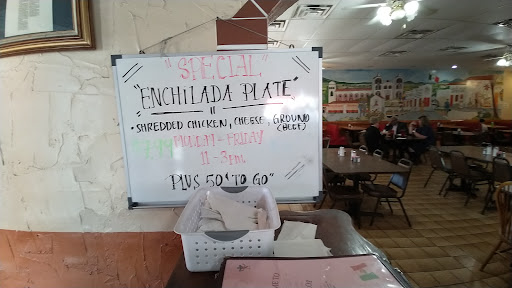 "SPECIAL"
"ENCHILADA PLATE"
• SHREDDED CHICKEN, CHEESE, GROUND
(BEEF)
$7.99 MONDAY - FRIDAY
11 - 3pm
PLUS 50¢ "TO GO"